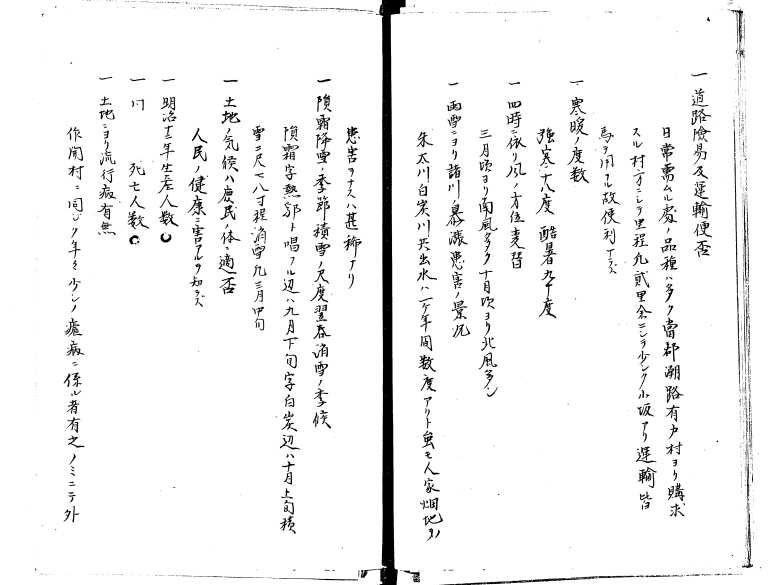 一 道路險易及運輸便否
日常需ムル處ノ品種ハ多ク當郡潮路有戸村ヨリ購求
スル村方ニシテ里程凡貳里余ニシテ少シク小坂アリ運輸皆
馬ヲ用フル故便利トス
一 寒暖ノ度数
強寒十八度 酷暑九十度
一 四時ニ依リ風ノ方位変替
三月頃ヨリ南風多ク十月頃ヨリ北風多シ
一 雨雪ニヨリ諸川ノ暴漲患害ノ景况
朱太川白炭川共出水ハ一ケ年間数度アリト虽モ人家畑地ヲ
患害ヲナスハ甚稀ナリ
一 隕霜降雪ノ季節積雪ノ尺度翌春消雪ノ季候
隕霜字熱郛ト唱フル辺ハ九月下旬字白炭辺ハ十月上旬積
雪ニ尺七八寸程消雪凡三月中旬
一 土地ノ気候ハ庶民ノ体ニ適否
人民ノ健康ニ害アルヲ知ラズ
一 明治十二年生産人数
一 同 死亡人数
一 土地ニヨリ流行病有無
作開村ニ同シク年々少シノ瘧病ニ係ル者有之ノミニテ外